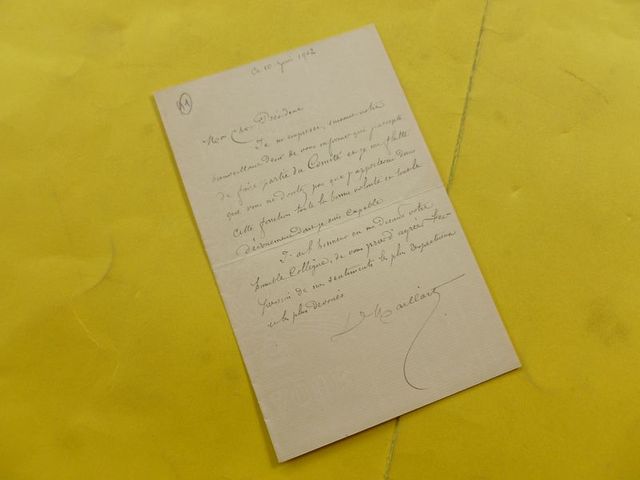 Ce 10 juin 1902
Mon Cher Président
Je m'empresse, suivant votre
bienveillant désir de vous informer que j'accepte
de faire partie du Comité et je me flatte
que vous ne doutez pas que j'apporterai dans
cette fonction toute la bonne volonté et tout le
dévouement dont je suis capable.
J'ai l'honneur en me disant votre
humble Collègue, de vous prier d'agréer l'ex-
pression de mes sentiments les plus respectueux
et les plus dévoués
D Maillart